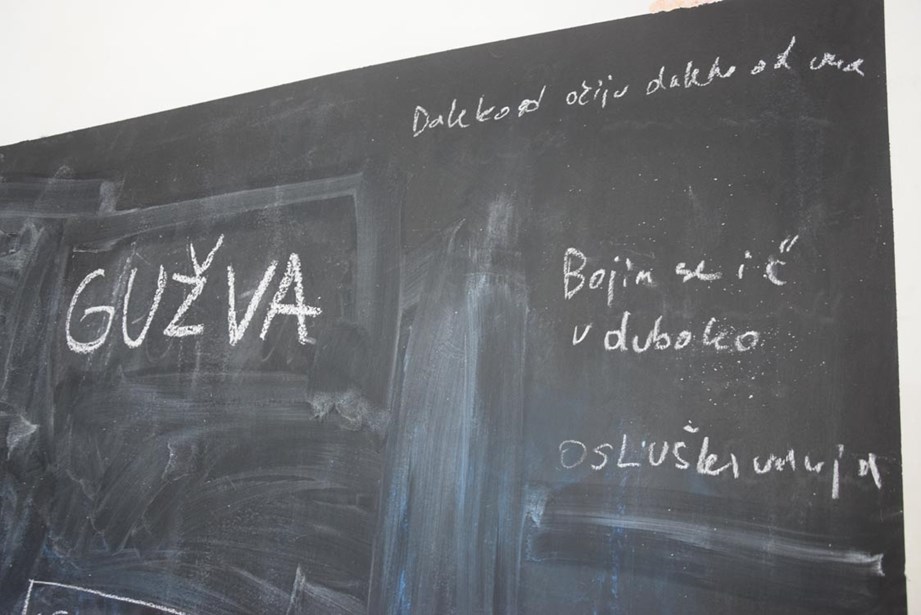 Daleko od očiju daleko od uma
GUŽVA
Bojim se ić
u duboko
OSLUŠkivanja